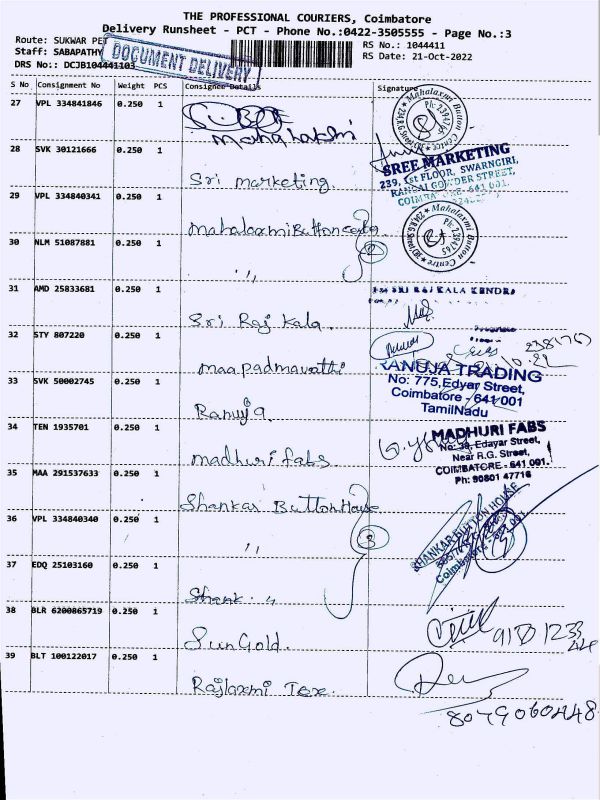 THE PROFESSIONAL COURIERS, Coimbatore
Delivery Runsheet - PCT - Phone No.:0422-3505555 - Page No.:3
Route: SUKWAR PET
RS No.: 1044411
Staff: SABAPATHY
RS Date: 21-Oct-2022
DRS No:: DCJB104441103
DOCUMENT DELIVERY
S No Consignment No Weight PCS Consignee Details Signature
27 VPL 334841846 0.250 1
mahalakshmi
Mahalaxmi Button Centre
28 SVK 30121666 0.250 1
Sri marketing
SREE MARKETING
239, 1st FLOOR, SWARNGIRI,
RANGAI GOWDER STREET,
COIMBATORE - 641 001.
29 VPL 334840341 0.250 1
mahalaxmi Button Centre
Mahalaxmi Button Centre
30 NLM 51087881 0.250 1
" 2
31 AMD 25833681 0.250 1
SRI RAJ KALA KENDRA
Sri Raj Kala.
32 STY 807220 0.250 1
maa padmavathi
33 SVK 50002745 0.250 1
TANUJA TRADING
No: 775, Edyar Street,
Coimbatore - 641 001
TamilNadu
34 TEN 1935701 0.250 1
madhuri fabs
MADHURI FABS
No: 38, Edayar Street,
Near R.G. Street,
COIMBATORE - 641 001.
Ph: 90801 47716
35 MAA 291537633 0.250 1
Shankar Button House
SHANKAR BUTTON HOUSE
36 VPL 334840340 0.250 1
" 3
37 EDQ 25103160 0.250 1
Shank. "
38 BLR 6200865719 0.250 1
Sun Gold.
39 BLT 100122017 0.250 1
Rajlaxmi Tex.